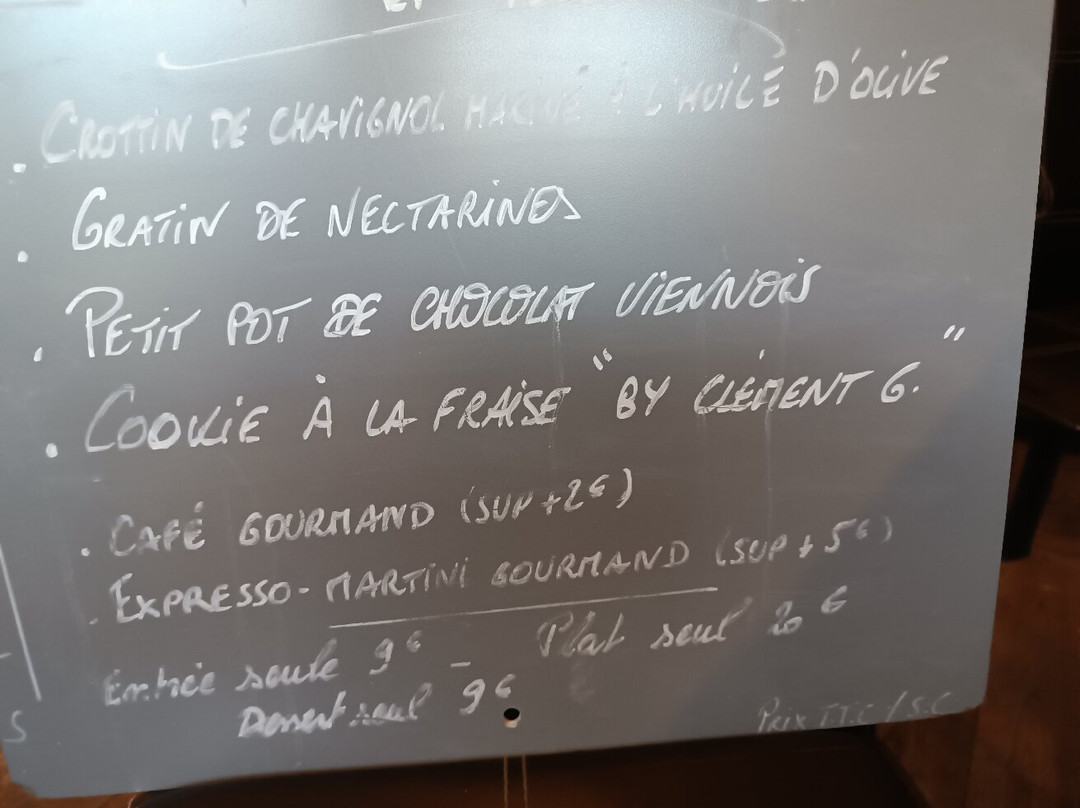 . CROTTIN DE CHAVIGNOL MARINÉ À L'HUILE D'OLIVE
. GRATIN DE NECTARINES
. PETIT POT DE CHOCOLAT VIENNOIS
. COOKIE À LA FRAISE "BY CLÉMENT G."
. CAFÉ GOURMAND (SUP+2€)
. EXPRESSO-MARTINI GOURMAND (SUP+5€)
Entrée seule 9€ - Plat seul 20€
Dessert seul 9€
Prix T.T.C / S.C
S